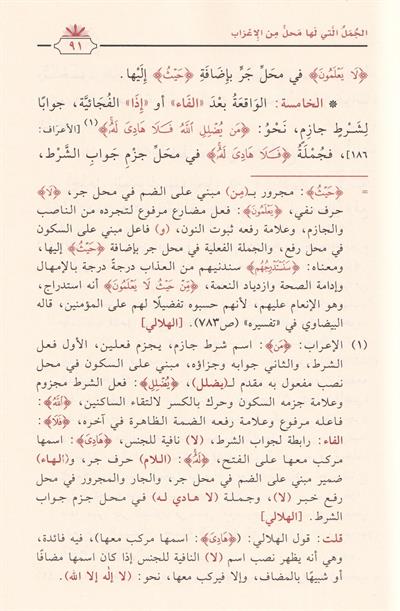 الجُمَلُ الَّتي لَها مَحلٌّ مِنَ الإِعْرَابِ
٩١
﴿لَا يَعْلَمُونَ﴾ في محَلِّ جَرٍّ بإضَافَةِ ﴿حَيْثُ﴾ إِلَيْها.
* الخامسة: الوَاقعَةُ بعْدَ «الفَاء» أو «إِذَا» الفُجَائيَّة، جوابًا
لِشَرطٍ جازمٍ، نَحْوُ: ﴿مَن يُضْلِلِ ٱللَّهُ فَلَا هَادِىَ لَهُۥ﴾(١) [الأعرَاف:
١٨٦]، فجُمْلَةُ ﴿فَلَا هَادِىَ لَهُۥ﴾ في محَلِّ جزْمٍ جَوابِ الشَّرط،
= ﴿حَيْثُ﴾: مجرور بـ(مِن) مبني على الضم في محل جر، ﴿لَا﴾
حرف نفي، ﴿يَعْلَمُونَ﴾: فعل مضارع مرفوع لتجرده من الناصب
والجازم، وعلامة رفعه ثبوت النون، (و) فاعل مبني على السكون
في محل رفع، والجملة الفعلية في محل جر بإضافة ﴿حَيْثُ﴾ إليها،
ومعناه: ﴿سَنَسْتَدْرِجُهُم﴾ سندنيهم من العذاب درجةً درجة بالإمهال
وإدامة الصحة وازدياد النعمة، ﴿مِّنْ حَيْثُ لَا يَعْلَمُونَ﴾ أنه استدراج،
وهو الإنعام عليهم، لأنهم حسبوه تفضيلًا لهم على المؤمنين، قاله
البيضاوي في «تفسيره» (ص٧٨٣). [الهلالي]
(١) الإعراب: ﴿مَن﴾: اسم شرط جازم، يجزم فعلين، الأول فعل
الشرط، والثاني جوابه وجزاؤه، مبني على السكون في محل
نصب مفعول به مقدم لـ(يضلل)، ﴿يُضْلِلِ﴾: فعل الشرط مجزوم
وعلامة جزمه السكون وحرك بالكسر لالتقاء الساكنين، ﴿ٱللَّهُ﴾:
فاعله مرفوع وعلامة رفعه الضمة الظاهرة في آخره، ﴿فَلَا﴾:
الفاء: رابطة لجواب الشرط، (لا) نافية للجنس، ﴿هَادِىَ﴾: اسمها
مركب معها على الفتح، ﴿لَهُۥ﴾: (اللام) حرف جر، و(الهاء)
ضمير مبني على الضم في محل جر، والجار والمجرور في محل
رفع خبر (لا)، وجملة (لا هادي له) في محل جزم جواب
الشرط. [الهلالي]
قلت: قول الهلالي: (﴿هَادِىَ﴾: اسمها مركب معها)، فيه فائدة،
وهي أنه يظهر نصب اسم (لا) النافية للجنس إذا كان اسمها مضافًا
أو شبيهًا بالمضاف، وإلا فيركب معها، نحو: (لا إلٰه إلا الله).